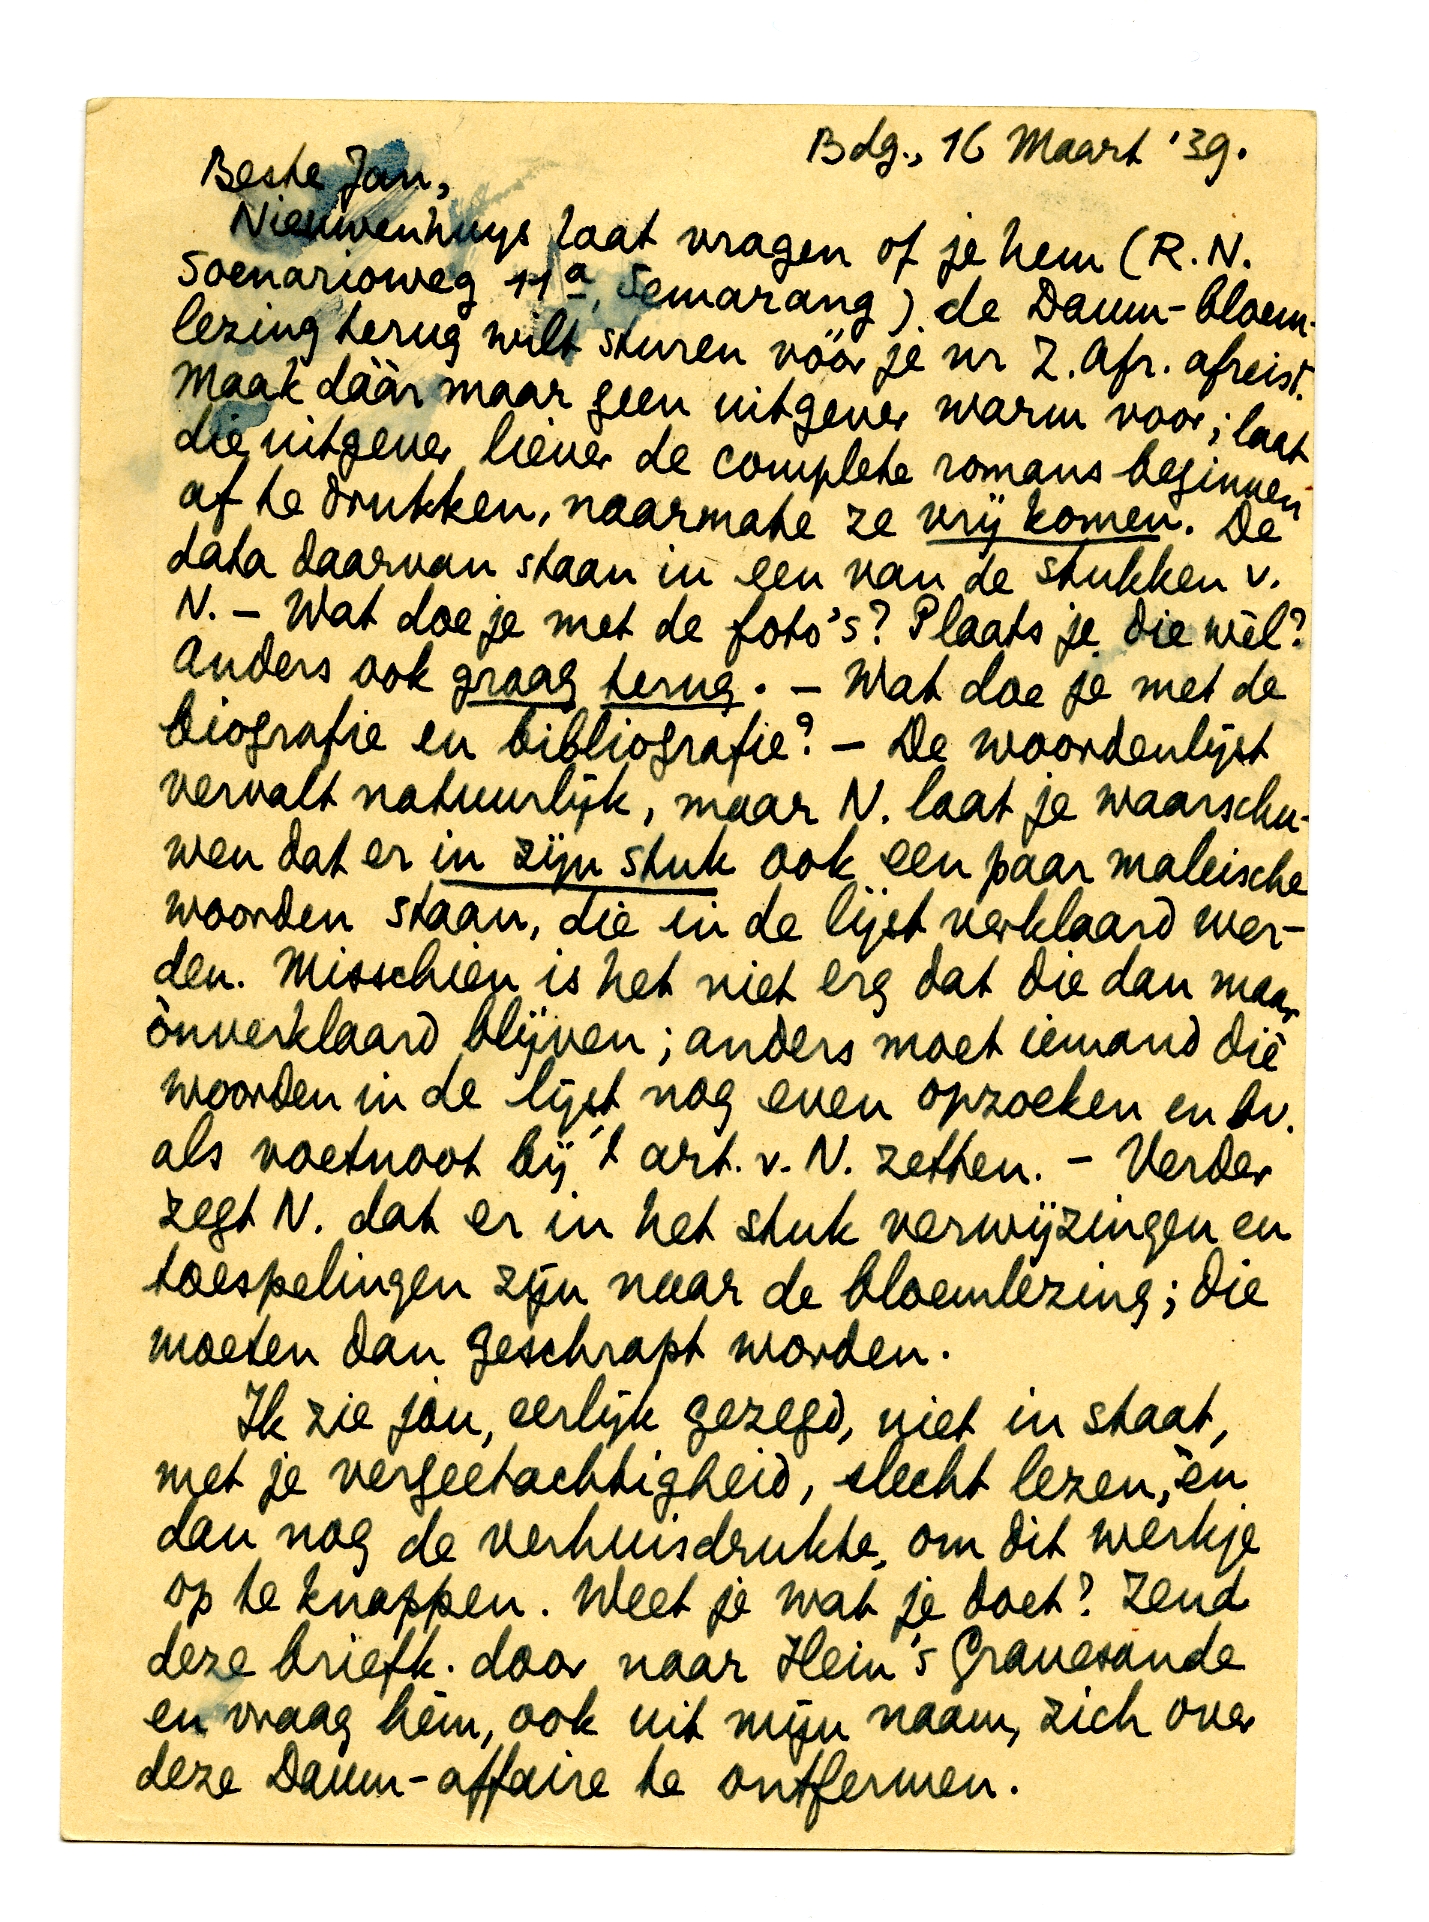 Bdg., 16 Maart '39.
Beste Jan,
Nieuwenhuys laat vragen of je hem (R.N.
Soenarioweg 11a, Semarang) de Daum-bloem-
lezing terug wilt sturen vóór je nr Z. Afr. afreist.
Maak dáár maar geen uitgever warm voor; laat
die uitgever liever de complete romans beginnen
af te drukken, naarmate ze vrij komen. De
data daarvan staan in een van de stukken v.
N. – Wat doe je met de foto's? Plaats je die wèl?
Anders ook graag terug. – Wat doe je met de
biografie en bibliografie? – De woordenlijst
vervalt natuurlijk, maar N. laat je waarschu-
wen dat er in zijn stuk ook een paar maleische
woorden staan, die in de lijst verklaard wer-
den. Misschien is het niet erg dat die dan maar
ònverklaard blijven; anders moet iemand diè
woorden in de lijst nog even opzoeken en bv.
als voetnoot bij 't art. v. N. zetten. – Verder
zegt N. dat er in het stuk verwijzingen en
toespelingen zijn naar de bloemlezing; die
moeten dan geschrapt worden.
Ik zie jóu, eerlijk gezegd, niet in staat,
met je vergeetachtigheid, slecht lezen, èn
dan nog de verhuisdrukte, om dit werkje
op te knappen. Weet je wat je doet? Zend
deze briefk. door naar Hein 's Gravesande
en vraag hèm, ook uit mijn naam, zich over
deze Daum-affaire te ontfermen.